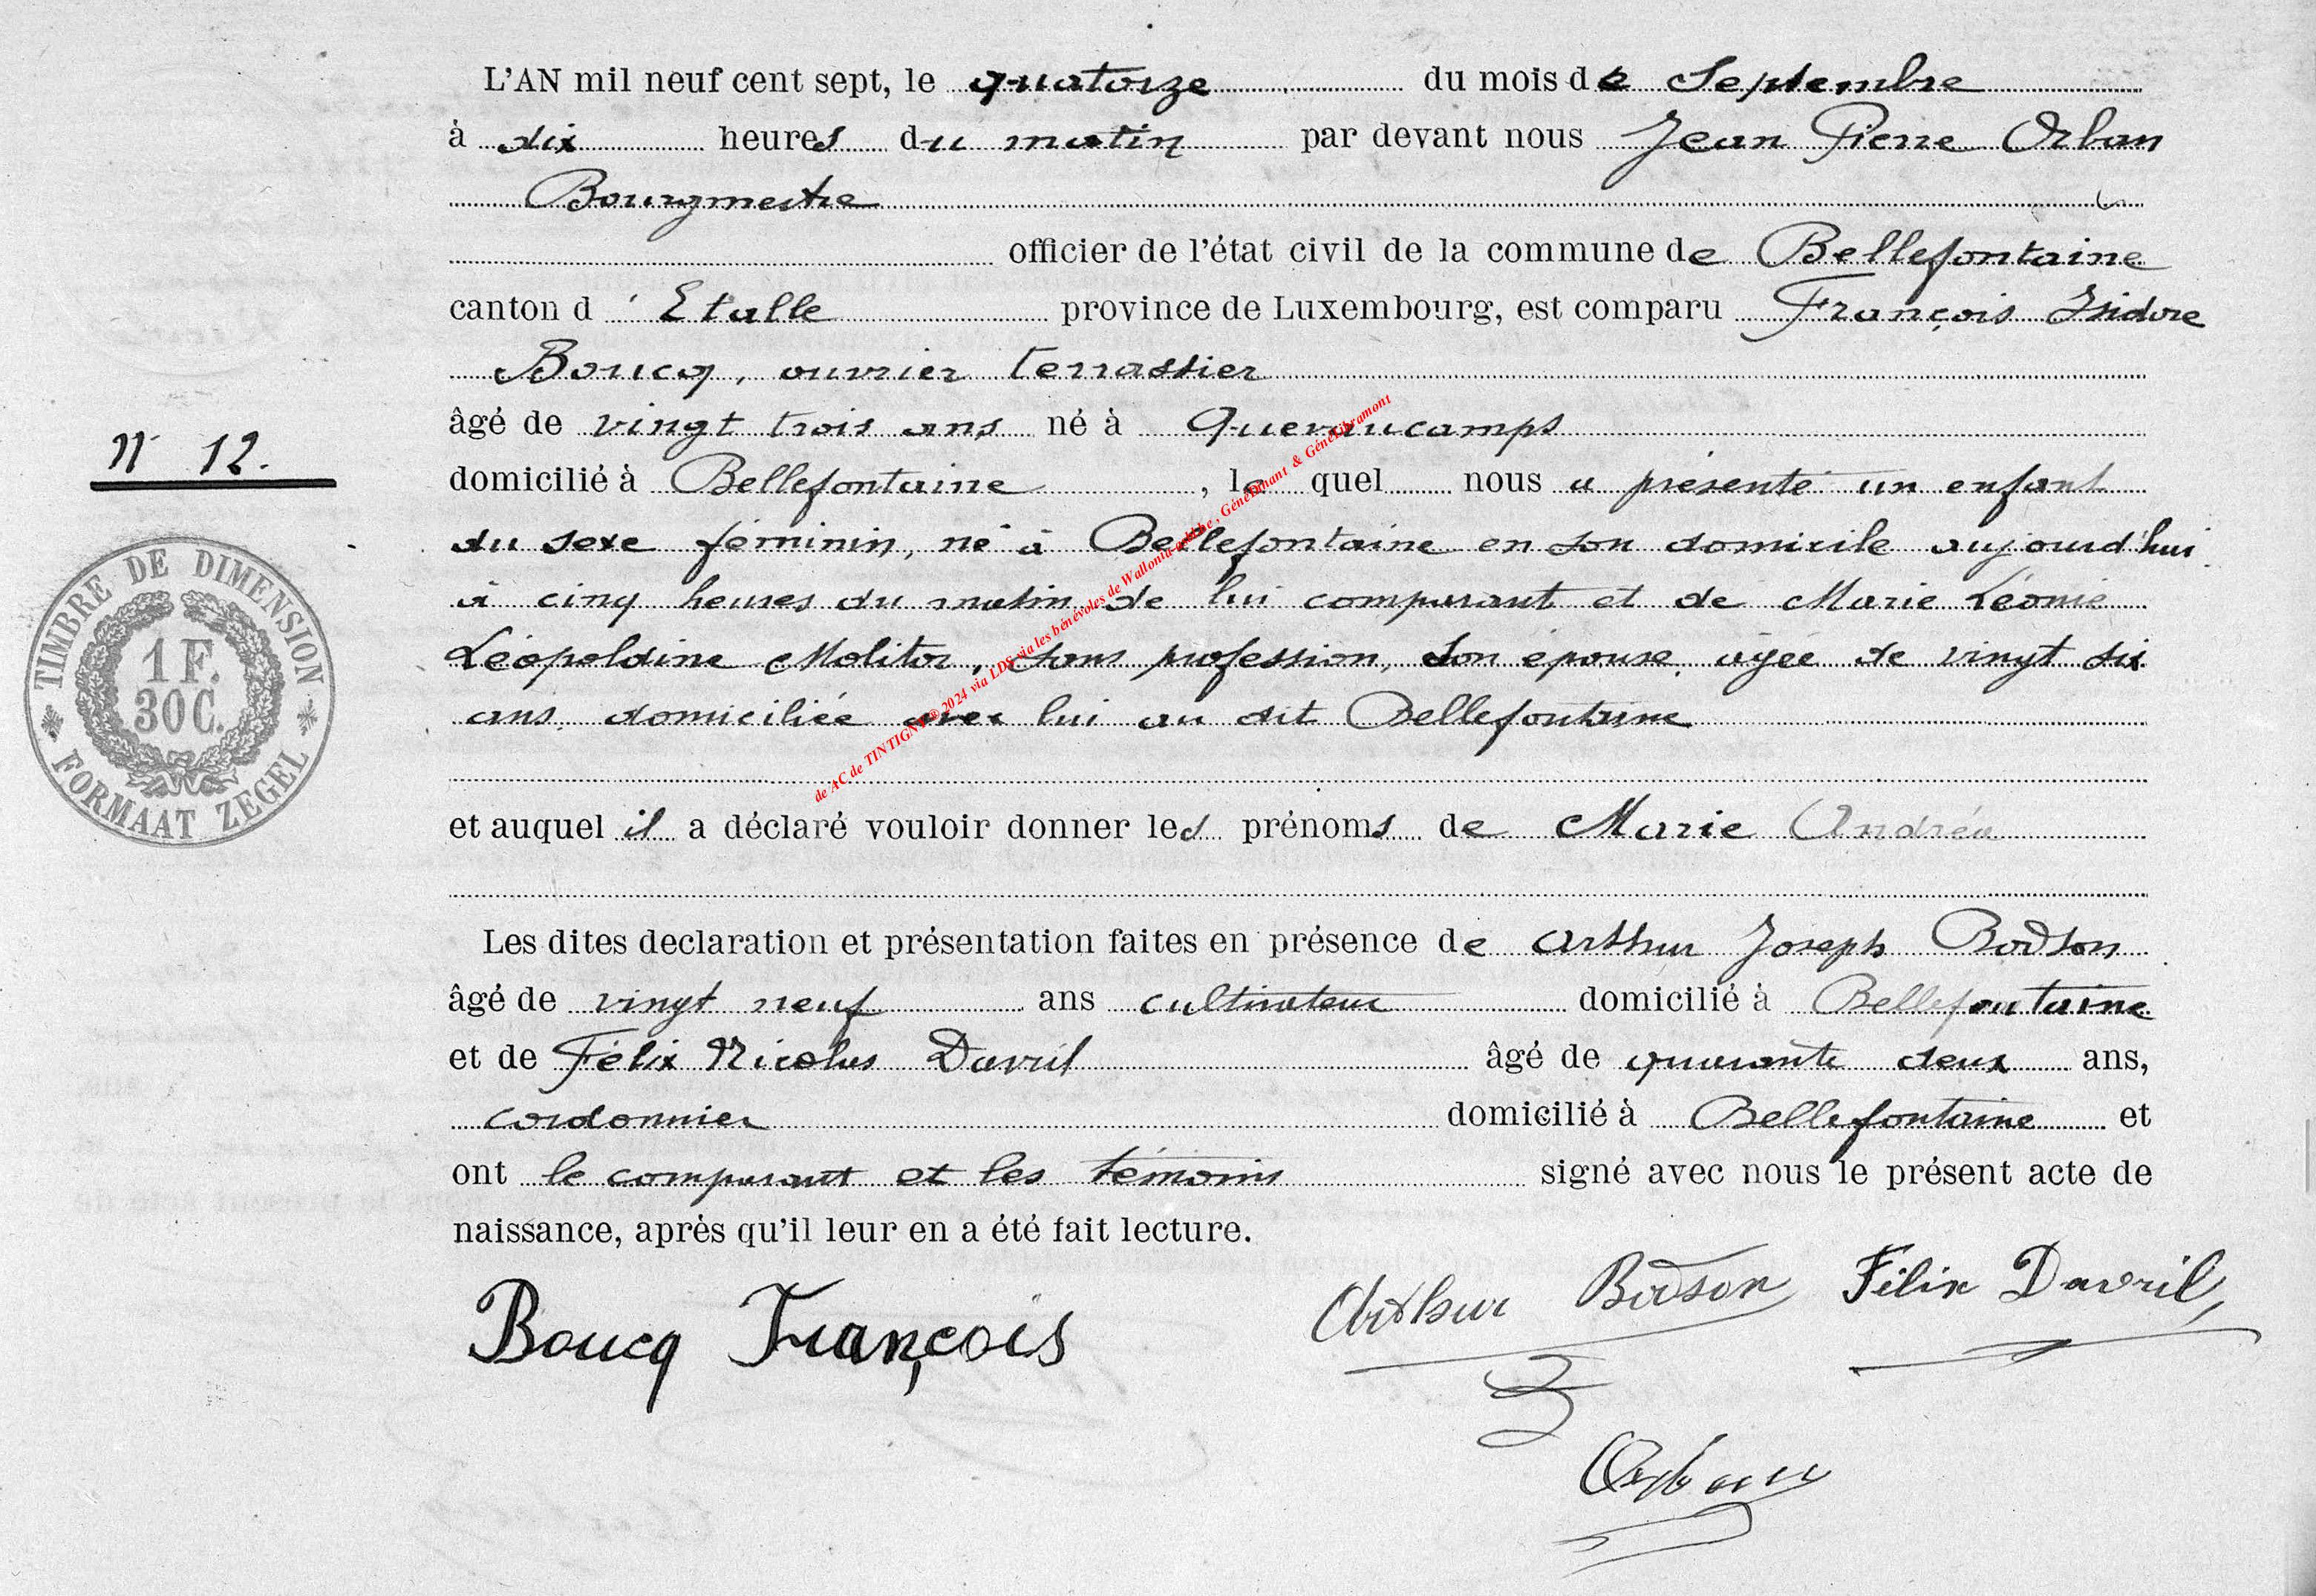 L'AN mil neuf cent sept, le quatorze du mois de Septembre
à dix heures du matin par devant nous Jean Pierre Orban
Bourgmestre
officier de l'état civil de la commune de Bellefontaine
canton d'Etalle province de Luxembourg, est comparu François Isidore
Boucq, ouvrier terrassier
âgé de vingt trois ans né à Quevaucamps
N° 12.
domicilié à Bellefontaine, lequel nous a présenté un enfant
du sexe féminin, né à Bellefontaine en son domicile aujourd'hui
à cinq heures du matin, de lui comparant et de Marie Léonie
Léopoldine Molitor, sans profession, son épouse, âgée de vingt six
ans, domiciliée avec lui au dit Bellefontaine
et auquel il a déclaré vouloir donner les prénoms de Marie Andréa
Les dites declaration et présentation faites en présence de Arthur Joseph Bodson
âgé de vingt neuf ans cultivateur domicilié à Bellefontaine
et de Félix Nicolas Davril âgé de quarante deux ans,
cordonnier domicilié à Bellefontaine et
ont le comparant et les témoins signé avec nous le présent acte de
naissance, après qu'il leur en a été fait lecture.
Boucq François Arthur Bodson Félix Davril
Orban
TIMBRE DE DIMENSION
1 F.
30 C.
FORMAAT ZEGEL
de AC de TINTIGNY @ 2024 via LDS via les bénévoles de Wallonia asbl
& GénéLibramont